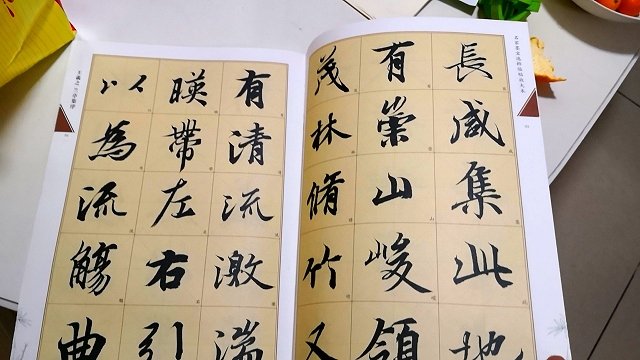 長咸集此地
有崇山峻領
茂林脩竹又
有清流激湍
暎帶左右引
以為流觴曲